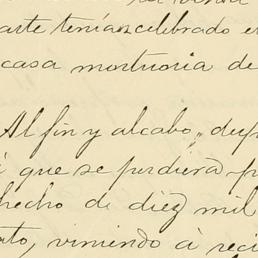 arte tenían celebrado e
casa mortuoria de
Al fin y al cabo, desp
que se perdiera p
hecho de diez mil
to, viniendo á reci